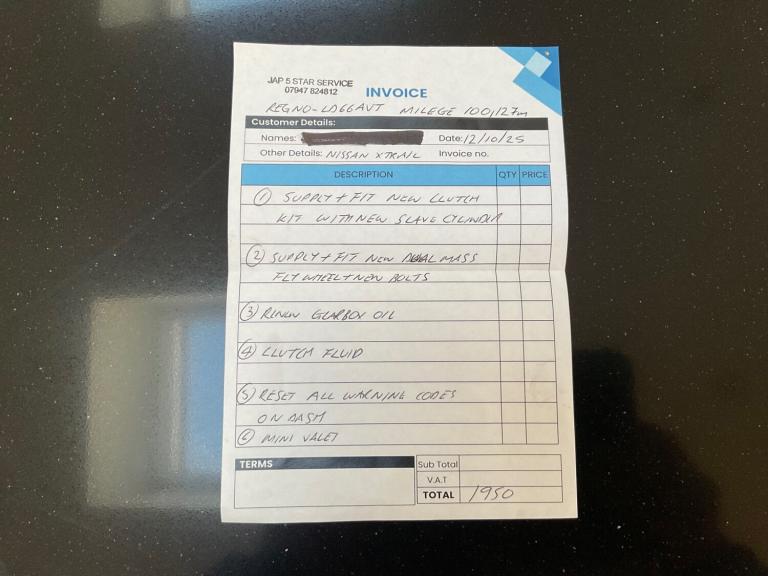 JAP 5 STAR SERVICE
07947 824812
INVOICE
REGNO- LD66AVT MILEGE 100,127m
Customer Details:
Names: Date: 12/10/25
Other Details: NISSAN XTRAIL Invoice no.
DESCRIPTION QTY PRICE
① SUPPLY + FIT NEW CLUTCH
KIT WITH NEW SLAVE CYLINDER
② SUPPLY + FIT NEW DUAL MASS
FLYWHEEL + NEW BOLTS
③ RENEW GEARBOX OIL
④ CLUTCH FLUID
⑤ RESET ALL WARNING CODES
ON DASH
⑥ MINI VALET
TERMS
Sub Total
V.A.T
TOTAL 1950